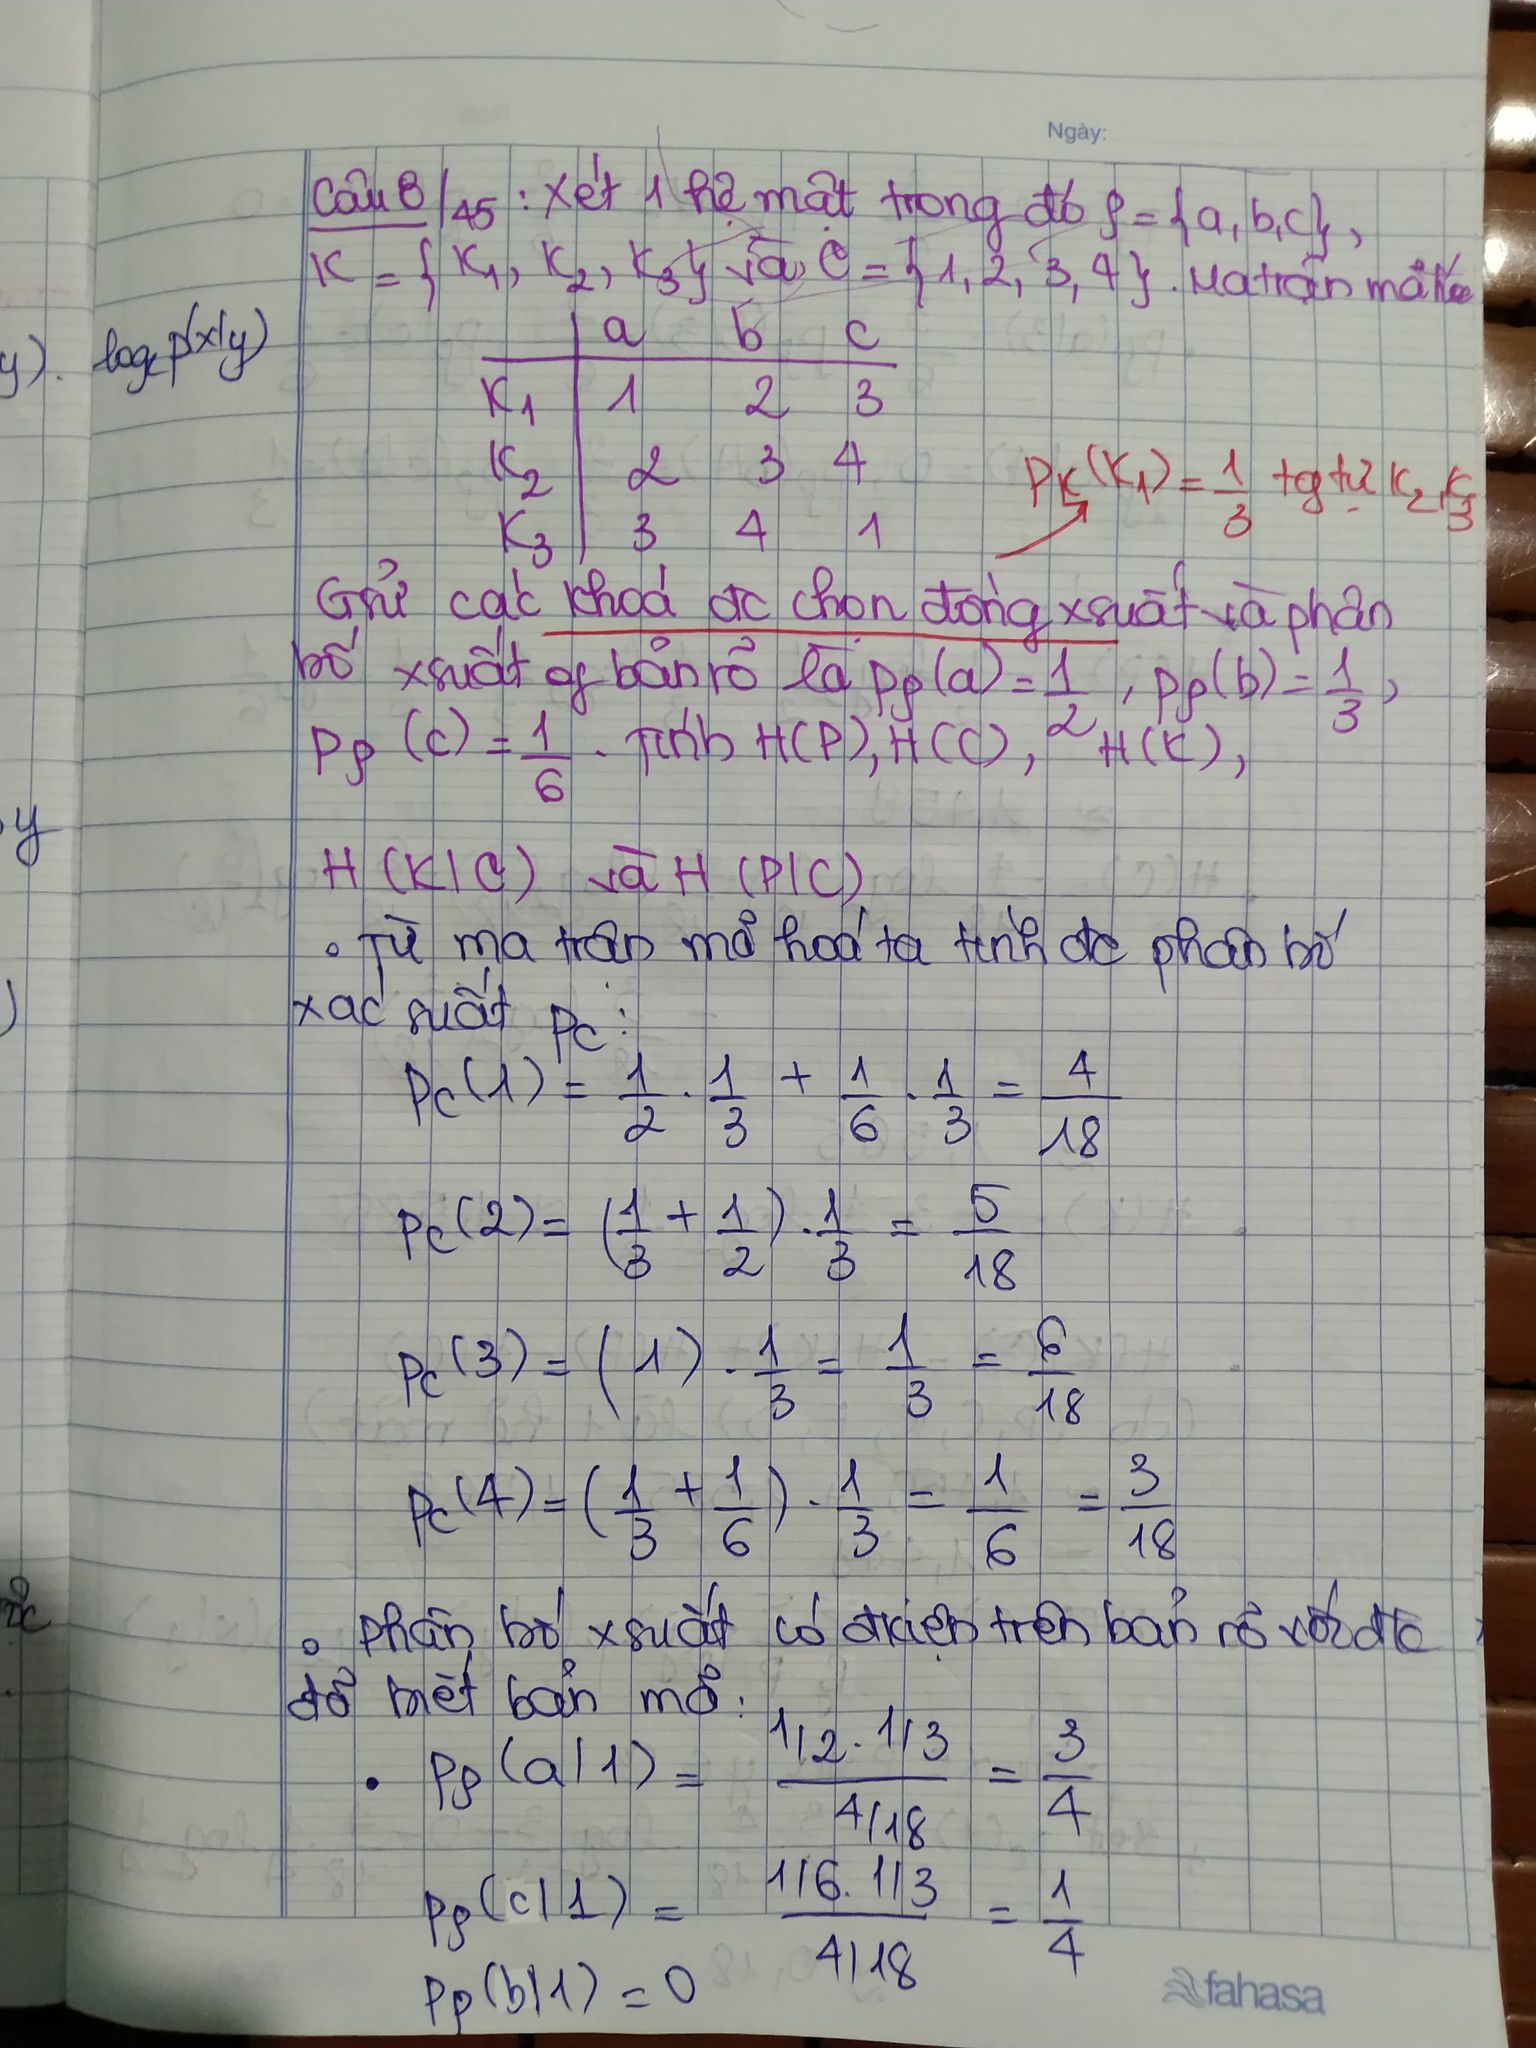 Ngày:
Câu 8/45: Xét 1 hệ mật trong đó P = {a, b, c},
K = {K1, K2, K3} và C = {1, 2, 3, 4}. Ma trận mã hóa
y). log2 p(x|y)
a b c
K1 1 2 3
K2 2 3 4
PK(K1) = 1/3 tg tự K2, K3
K3 3 4 1
Giử các khoá đc chọn đồng xsuất và phân
bố xsuất of bản rõ là pP(a) = 1/2, pP(b) = 1/3,
pP(c) = 1/6. Tính H(P), H(C), H(K),
y
H(K|C) và H(P|C)
• Từ ma trận mã hoá ta tính đc phân bố
xác suất PC:
PC(1) = 1/2 . 1/3 + 1/6 . 1/3 = 4/18
PC(2) = (1/3 + 1/2) . 1/3 = 5/18
PC(3) = (1) . 1/3 = 1/3 = 6/18
PC(4) = (1/3 + 1/6) . 1/3 = 1/6 = 3/18
• Phân bố xsuất có đkiện trên bản rõ với đk
đã biết bản mã:
• PP(a|1) = (1/2 . 1/3)/(4/18) = 3/4
PP(c|1) = (1/6 . 1/3)/(4/18) = 1/4
PP(b|1) = 0
fahasa